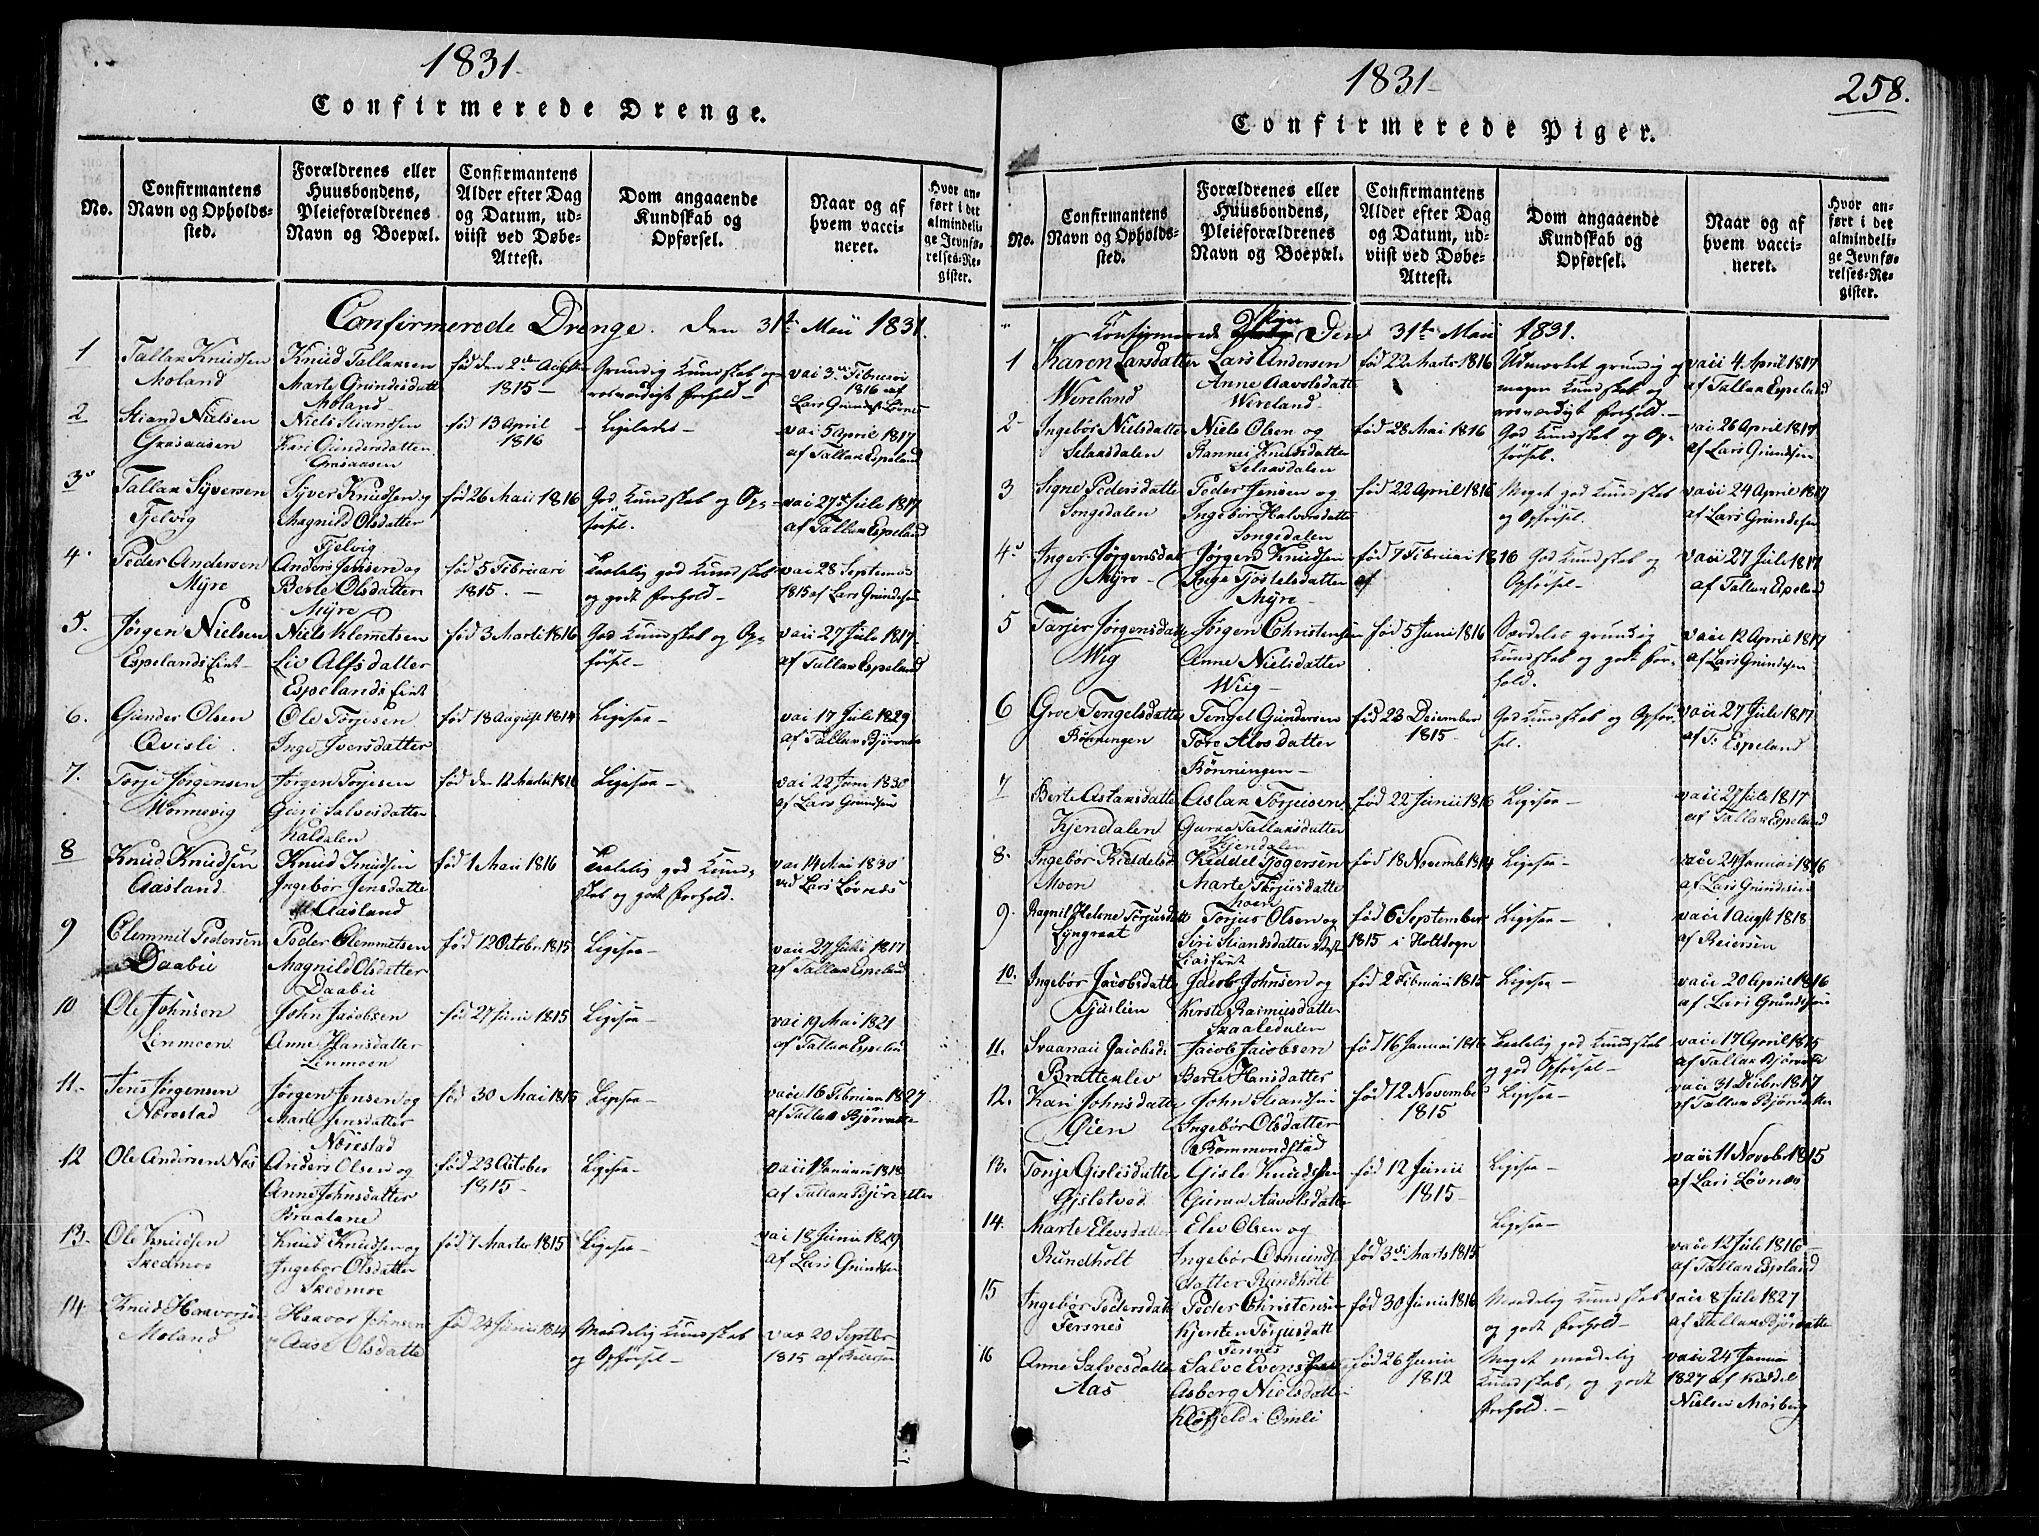 1831
Confirmerede Drenge.
No.
Confirmantens
Navn og Opholds-
sted.
Forældrenes eller
Huusbondens,
Pleieforældrenes
Navn og Boepæl.
Confirmantens
Alder efter Dag
og Datum, ud-
viist ved Døbe-
Attest.
Dom angaaende
Kundskab og
Opførsel.
Naar og af
hvem vacci-
neret.
Hvor an-
ført i det
almindeli-
ge Jevnfø-
relses-Re-
gister.
Confirmerede Drenge. Den 31te Maii 1831.
1 Tallak Knudsen
Moland
Knud Tallaksen
Marte Gundersdatt
Moland
fød den 2den August
1815
Grundig Kundskab og
roesværdigt Forhold
vac 3 Februari
1816 af
Lars Grundes. Løvnes
2 Strand Nielsen
Graasaasen
Niels Strandsen
Kari Gundersdatter
Graasaasen
fød 13 April
1816
Ligeledes
vac 5 April 1817
af Tallak Espeland
3 Tallak Syversen
Fjelvig
Syver Knudsen og
Magnild Olsdatter
Fjelvig
fød 26 Marts 1816
God Kundskab og Op-
førsel.
vac 27 Julii 1817
af Tallak Espeland
4 Peder Andersen
Myre
Anders Jensen og
Berte Olsdatter
Myre
fød 5 Februari
1815.
Taalelig god Kundskab
og godt Forhold
vac 28 Septemb
1815 af Lars Grundesen
5. Jørgen Nielsen
Espelands Eiet
Niels Klemetsen
Liv Alfsdatter
Espelands Eiet
fød 3 Marti 1816
God Kundskab og Op-
førsel
vac 27 Julii 1817
af Tallak Espeland
6. Gunder Olsen
Qvisli
Ole Torjesen
Inge Iversdatter
fød 18 August 1814
Ligesaa
vac 17 Julii 1829
af Tallak Bjorvatn
7. Torje Jørgensen
Mornevig
Jørgen Torjesen
Guri Salvesdatter
Kaldalen
fød den 12 Martii 1816
Ligesaa
vac 22 Juni 1830
af Lars Grundesen
8 Knud Knudsen
Aasland
Knud Knudsen
Ingebør Jensdatte
Aasland
fød 1 Maii 1816
Taalelig god Kund-
skab og godt Forhold.
vac 14 Mai 1830
ved Lars Løvnes
9 Clemmit Pedersen
Daabu
Peder Clemmetsen
Magnild Olsdatter
Daabu
fød 12 October 1815
Ligesaa
vac 27 Julii 1817
af Tallak Espeland
10 Ole Johnsen
Linmoen
John Jacobsen
Anne Hansdatter
Linmoen
fød 27 Junii 1815
Ligesaa
vac 19 Mai 1821
af Tallak Espeland
11. Jens Jørgensen
Nærestad
Jørgen Jensen og
Marte Jensdatter
Nærestad
fød 30 Mai 1815
Ligesaa
vac 16 Februari 1827
af Tallak Bjørvatn
12 Ole Andersen Næs
Anders Olsen og
Anne Johnsdatter
Braalane
fød 23 October
1815
Ligesaa
vac Januari 1818
af Tallak Bjørvatten
13. Ole Knudsen
Skedmoe
Knud Knudsen og
Ingebør Olsdatter
Skedmoe
fød 7 Martii 1815
Ligesaa
vac 18 Junii 1829
af Lars Grundesen
14. Knud Haavorsen
Moland
Haavor Johnsen
Aase Olsdatte
fød 24 Junii 1814
Maadelig Kundskab
og Opførsel
vac 20 Septber
1815 af Reiersen
1831
258.
Confirmerede Piger.
No.
Confirmantens
Navn og Opholds-
sted.
Forældrenes eller
Huusbondens,
Pleieforældrenes
Navn og Boepæl.
Confirmantens
Alder efter Dag
og Datum, ud-
viist ved Døbe-
Attest.
Dom angaaende
Kundskab og
Opførsel.
Naar og af
hvem vacci-
neret.
Hvor an-
ført i det
almindeli-
ge Jevnfø-
relses-Re-
gister.
Confirmerede Piger Den 31te Maii 1831.
1 Karen Larsdatter
Wereland
Lars Andersen
Anne Aavolsdatte
Wereland
fød 22 Marts 1816
Udmærket grundig og
megen Kundskab og
roesværdigt Forhold.
vac 4 April 1817
af Tallak Espeland
2 Ingebør Nielsdatter
Selaasdalen
Niels Olsen og
Rannei Knudsdatter
Selaasdalen
fød 28 Mai 1816
God Kundskab og Op-
førsel.
vac 26 April 1817
af Lars Grundesen
3 Signe Pedersdatte
Songedalen
Peder Jensen og
Ingebør Halvorsdatter
Songedalen
fød 22 April 1816
Meget god Kundskab
og Opførsel.
vac 24 April 1817
af Lars Grundesen
4 Inger Jørgensdat
Myre
Jørgen Knudsen
Inge Tjøstelsdatter
Myre
fød 7 Februari 1816
God Kundskab og
Opførsel
vac 27 Julii 1817
af Tallak Espeland
5 Tarjer Jørgensdatte
Wiig
Jørgen Christensen
Anne Nielsdatter
Wiig
fød 5 Juni 1816
Særdeles grundig
Kundskab og godt For-
hold.
vac 12 April 1817
af Lars Grundesen
6 Groe Tengelsdatte
Rønningen
Tengel Gundersen
Tore Alvsdatter
Rønningen
fød 23 December
1815
God Kundskab og Opfør-
sel.
vac 27 Julii 1817
af T. Espeland
7 Berte Aslaksdatte
Kjendalen
Aslak Torjusen
Guroa Tallaksdatter
Kjendalen
fød 22 Junii 1816
Ligesaa
vac 27 Julii 1817
af Tallak Espeland
8. Ingebør Kiddelsd
Moen
Kiddel Tjøgersen
Marte Torjusdatte
Moen
fød 18 Novemb 1814
Ligesaa
vac 24 Januai 1816
af Lars Grundesen
9. Ragnil Helene Torjusdatt
Lyngraat
Torjus Olsen og
Siri Strandsdatter
fød 6 September
1815 i Holtsogn
Ligesaa
vac 1 Augst 1818
af Reiersen
10. Ingebør Jacobsdatte
Jacob Johnsen og
Kirste Rasmusdatter
Skaaledalen
fød 2 Februari 1815
Ligesaa
vac 20 April 1816
af Lars Grundesen
11. Svaanau Jacobsd.
Brattenlev
Jacob Jacobsen
Berte Hansdatter
fød 16 Januai 1816
Taalelig god Kundskab
og god Opførsel
vac 17 April 1815
af Tallak Bjørvatn
12. Kari Johnsdatte
Øien
John Strandsen
Ingebør Olsdatter
Rommundstad
fød 12 Novembe
1815
Ligesaa
vac 31 Decbr 1817
af Tallak Bjørvatten
13. Tonje Gislesdatte
Gjsletvød
Gisle Knudsen
Guroa Aavolsdatte
fød 12 Junii
1815
Ligesaa
vac 11 Novbr 1815
af Lars Løvnes
14. Marte Elevsdatter
Rundholt
Elev Olsen og
Ingebør Osmunds
datter Rundholt
fød 3di Marts 1815
Ligesaa
vac 12 Julii 1816
af Tallak Espeland
15 Ingebør Pedersdatte
Fersnes
Peder Christensen
Kjersten Torjusdatt
Fersnes
fød 30 Junii 1816
Maadelig Kundskab
og godt Forhold
vac 8 Julii 1827
af Tallak Bjørvatte
16 Anne Salvesdatte
Aas
Salve Evensen
Asberg Nielsdatte
Kløfjeld i Omli
fød 26 Junii
1812
Meget maadelig
Kundskab, og godt
Forhold.
vac 24 Januai
1827 af Kiddel
Nielsen Mosberg